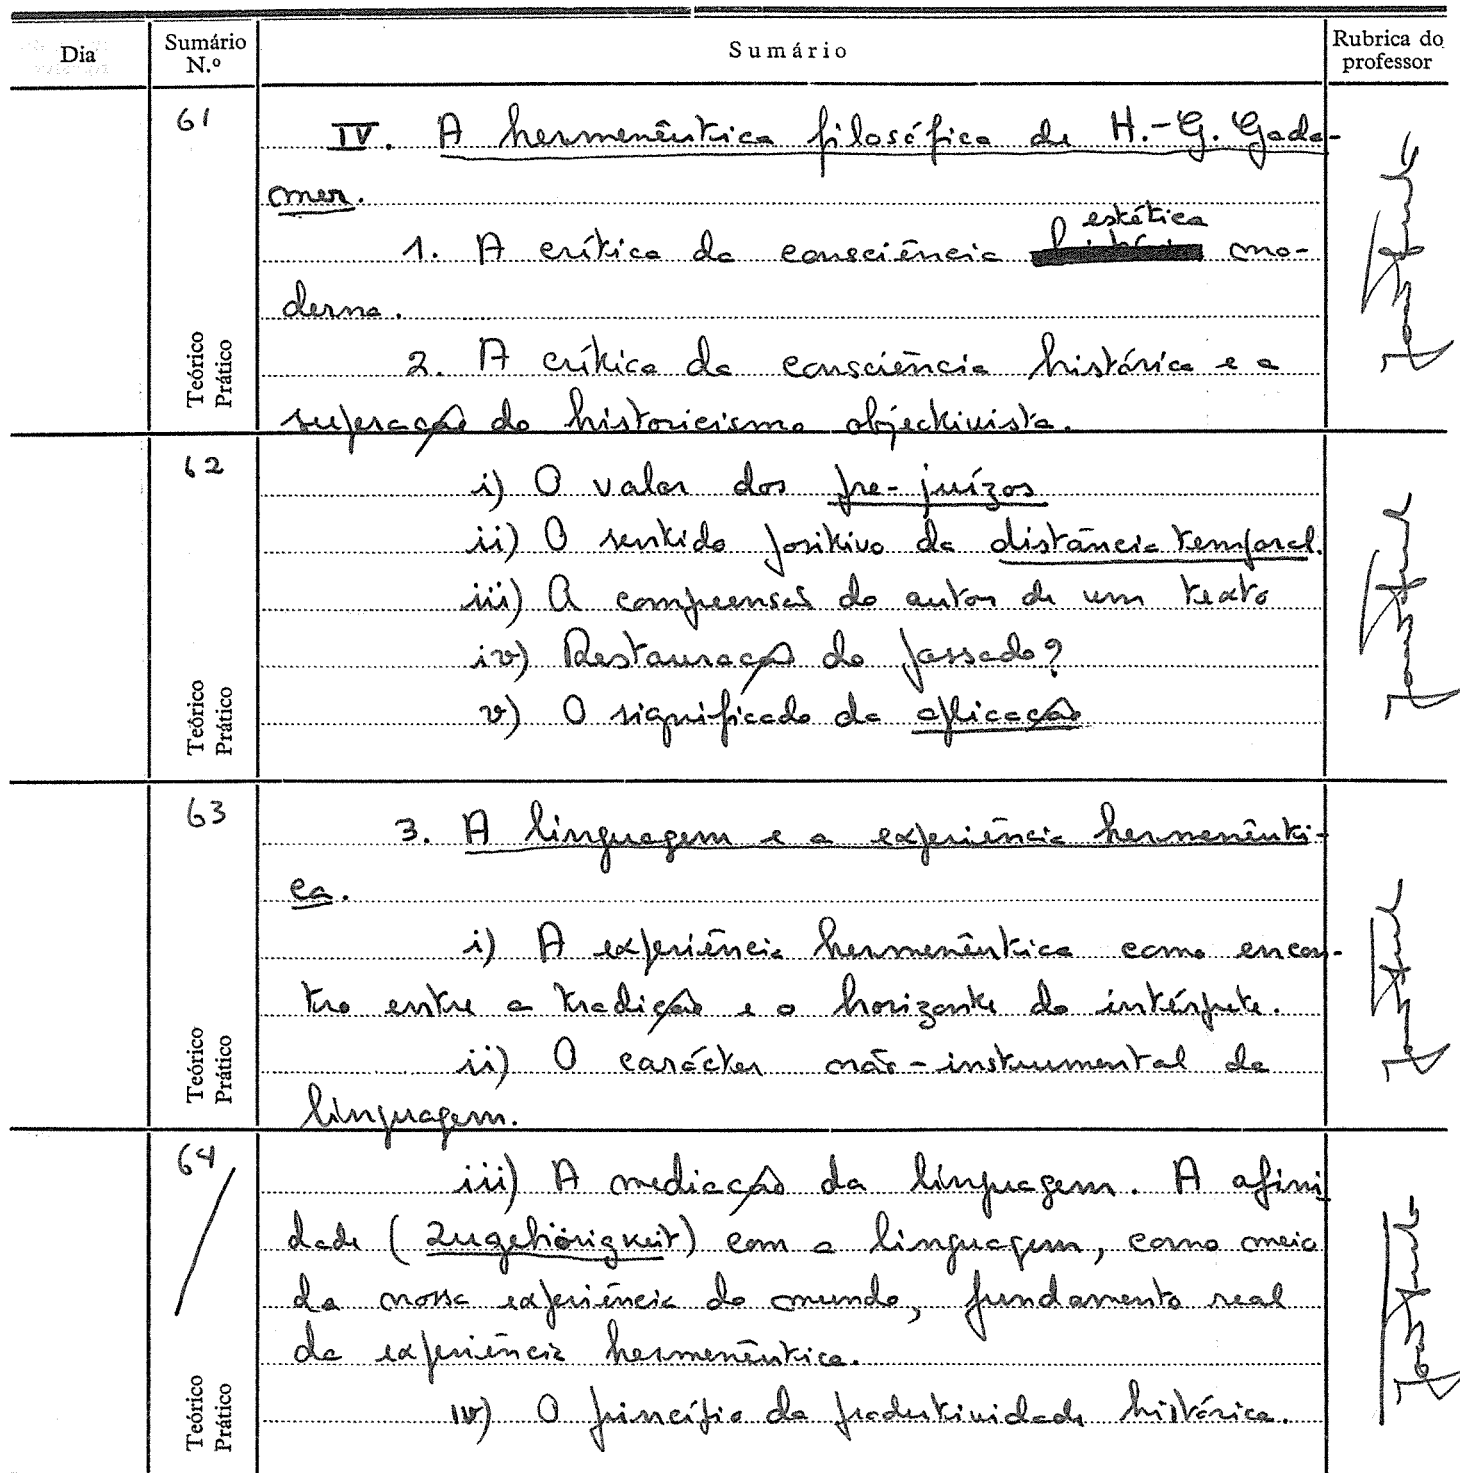 Dia
Sumário N.º
Sumário
Rubrica do professor
61
IV. A hermenêutica filosófica de H.-G. Gada-
mer.
estética
1. A crítica da consciência mo-
derna.
2. A crítica da consciência histórica e a
superação do historicismo objectivista.
Teórico
Prático
62
i) O valor dos pre-juízos
ii) O sentido positivo da distância temporal.
iii) A compreensão do autor de um texto
iv) Restauração do passado?
v) O significado da aplicação
Teórico
Prático
63
3. A linguagem e a experiência hermenêuti-
ca.
i) A experiência hermenêutica como encon-
tro entre a tradição e o horizonte do intérprete.
ii) O carácter não-instrumental da
linguagem.
Teórico
Prático
64
iii) A mediação da linguagem. A afini
dade (Zugehörigkeit) com a linguagem, como meio
da nossa experiência do mundo, fundamento real
da experiência hermenêutica.
iv) O princípio da produtividade histórica.
Teórico
Prático